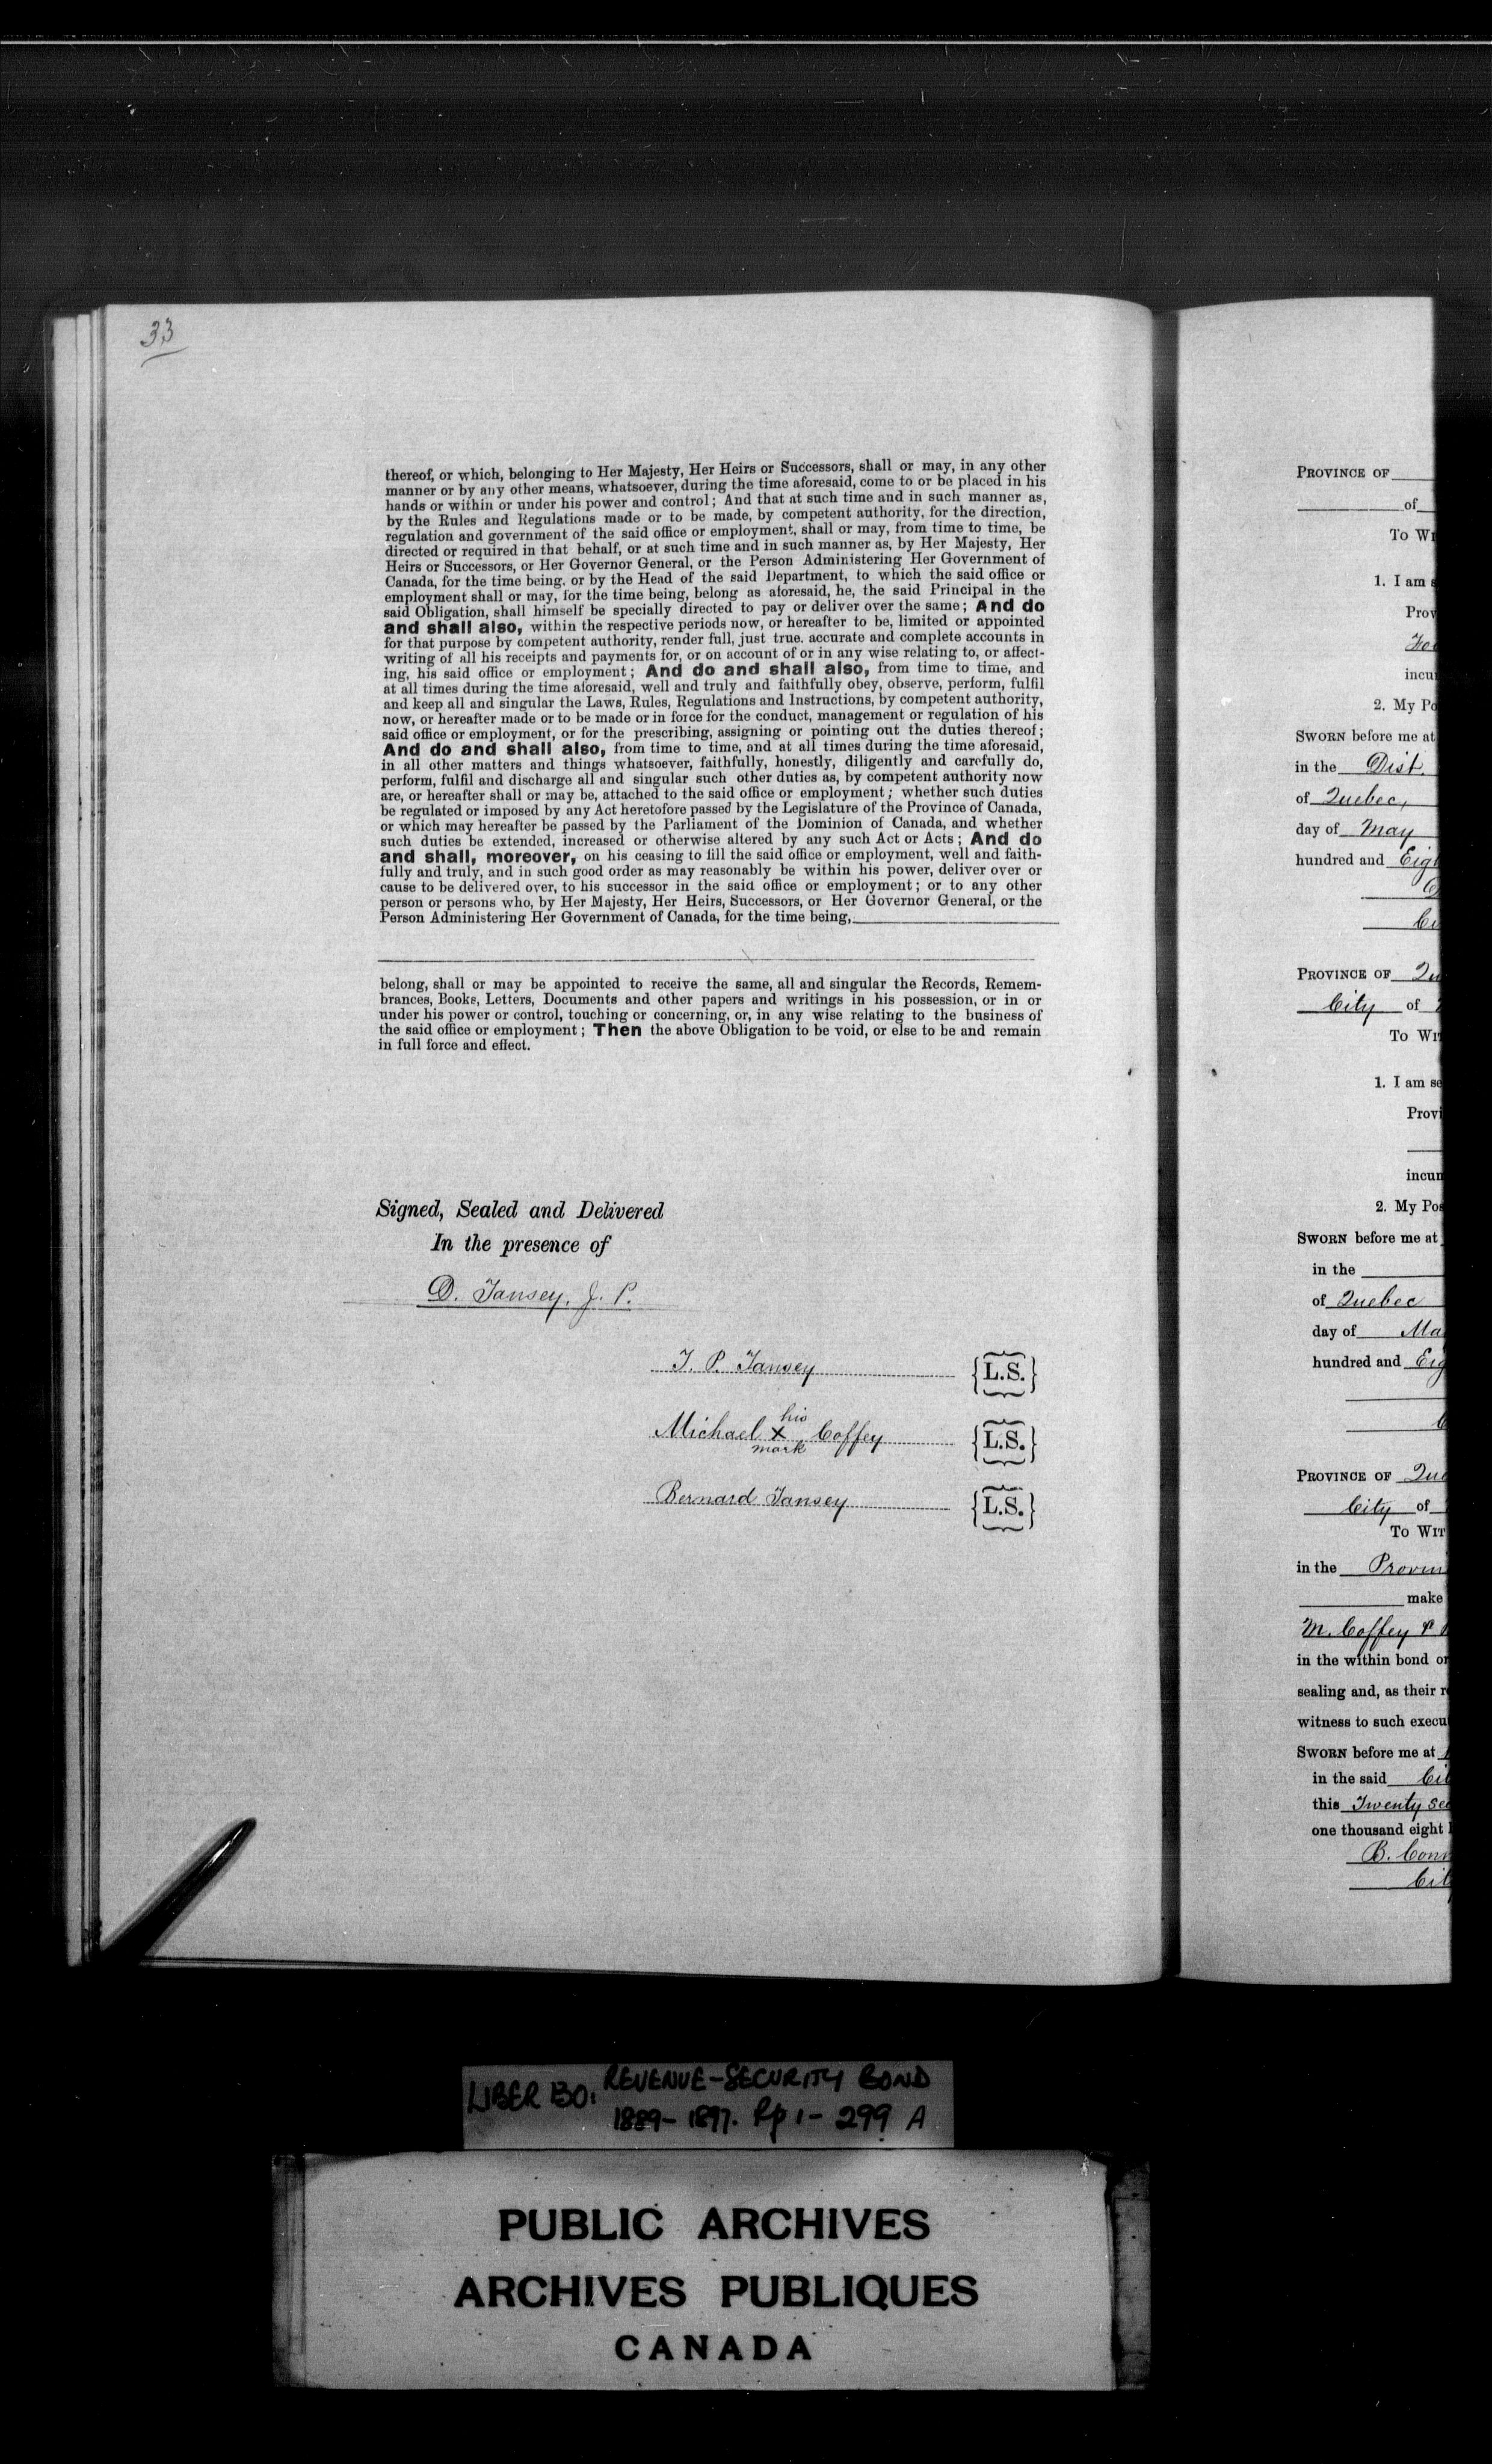 33
thereof, or which, belonging to Her Majesty, Her Heirs or Successors, shall or may, in any other
manner or by any other means, whatsoever, during the time aforesaid, come to or be placed in his
hands or within or under his power and control; And that at such time and in such manner as,
by the Rules and Regulations made or to be made, by competent authority, for the direction,
regulation and government of the said office or employment, shall or may, from time to time, be
directed or required in that behalf, or at such time and in such manner as, by Her Majesty, Her
Heirs or Successors, or Her Governor General, or the Person Administering Her Government of
Canada, for the time being, or by the Head of the said Department, to which the said office or
employment shall or may, for the time being, belong as aforesaid, he, the said Principal in the
said Obligation, shall himself be specially directed to pay or deliver over the same; And do
and shall also, within the respective periods now, or hereafter to be, limited or appointed
for that purpose by competent authority, render full, just true. accurate and complete accounts in
writing of all his receipts and payments for, or on account of or in any wise relating to, or affect-
ing, his said office or employment; And do and shall also, from time to time, and
at all times during the time aforesaid, well and truly and faithfully obey, observe, perform, fulfil
and keep all and singular the Laws, Rules, Regulations and Instructions, by competent authority,
now, or hereafter made or to be made or in force for the conduct, management or regulation of his
said office or employment, or for the prescribing, assigning or pointing out the duties thereof;
And do and shall also, from time to time, and at all times during the time aforesaid,
in all other matters and things whatsoever, faithfully, honestly, diligently and carefully do,
perform, fulfil and discharge all and singular such other duties as, by competent authority now
are, or hereafter shall or may be, attached to the said office or employment; whether such duties
be regulated or imposed by any Act heretofore passed by the Legislature of the Province of Canada,
or which may hereafter be passed by the Parliament of the Dominion of Canada, and whether
such duties be extended, increased or otherwise altered by any such Act or Acts; And do
and shall, moreover, on his ceasing to fill the said office or employment, well and faith-
fully and truly, and in such good order as may reasonably be within his power, deliver over or
cause to be delivered over, to his successor in the said office or employment; or to any other
person or persons who, by Her Majesty, Her Heirs, Successors, or Her Governor General, or the
Person Administering Her Government of Canada, for the time being,
belong, shall or may be appointed to receive the same, all and singular the Records, Remem-
brances, Books, Letters, Documents and other papers and writings in his possession, or in or
under his power or control, touching or concerning, or, in any wise relating to the business of
the said office or employment; Then the above Obligation to be void, or else to be and remain
in full force and effect.
Signed, Sealed and Delivered
In the presence of
D. Tansey, J. P.
T. P. Tansey {L.S.}
his
Michael X Coffey {L.S.}
mark
Bernard Tansey {L.S.}
PROVINCE OF
of
To
1. I am
incu
2. My
SWORN before me at
in the Dist.
of Quebec,
day of May
hundred and
PROVINCE OF
City of
To
1. I am
2. My
SWORN before me at
in the
of Quebec
day of
hundred and
PROVINCE OF
City of
To WIT
in the
make
M. Coffey &
in the within bond
sealing and, as their
witness to such
SWORN before me at
in the said
this Twenty
one thousand eight
B.
LIBER 130. REVENUE-SECURITY BOND
1889-1897. Pp 1-299 A
PUBLIC ARCHIVES
ARCHIVES PUBLIQUES
CANADA